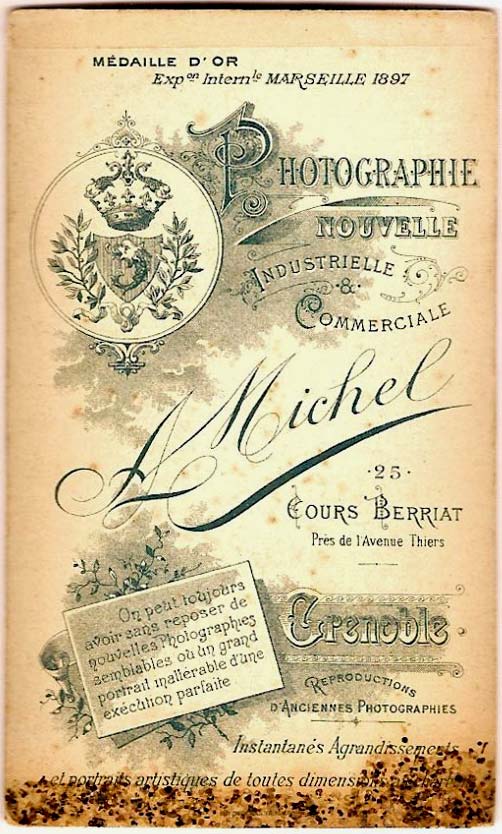 MÉDAILLE D'OR
Expon Internle MARSEILLE 1897
PHOTOGRAPHIE
NOUVELLE
INDUSTRIELLE
&
COMMERCIALE
A Michel
·25·
COURS BERRIAT
Près de l'Avenue Thiers
Grenoble
On peut toujours
avoir sans reposer de
nouvelles Photographies
semblables ou un grand
portrait inaltérable d'une
exécution parfaite
REPRODUCTIONS
D'ANCIENNES PHOTOGRAPHIES
Instantanés Agrandissements
et portraits artistiques de toutes dimensions